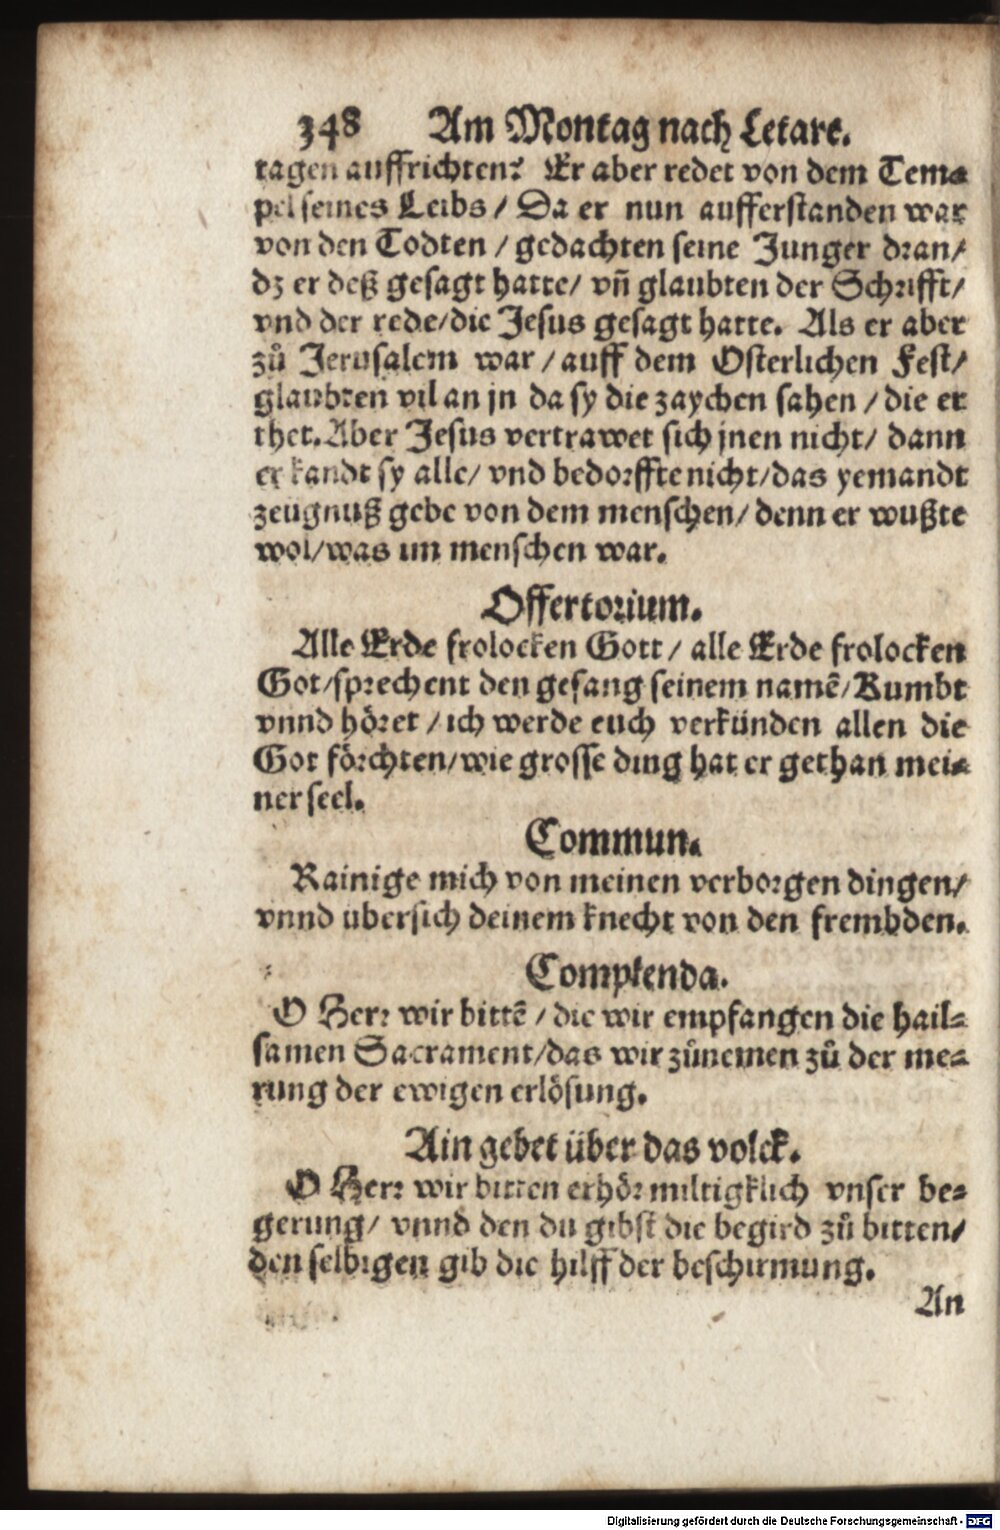 348 Am Montag nach Letare.
tagen auffrichten? Er aber redet von dem Tem⸗
pel seines Leibs / Da er nun aufferstanden war
von den Todten / gedachten seine Junger dran/
dz er deß gesagt hatte/ vñ glaubten der Schrifft/
vnd der rede/die Jesus gesagt hatte. Als er aber
zů Jerusalem war / auff dem Osterlichen Fest/
glaubten vil an jn da sy die zaychen sahen / die er
thet. Aber Jesus vertrawet sich jnen nicht/ dann
er kandt sy alle/ vnd bedorffte nicht/das yemandt
zeugnuß gebe von dem menschen/ denn er wußte
wol/was im menschen war.
Offertorium.
Alle Erde frolocken Gott / alle Erde frolocken
Got/sprechent den gesang seinem namẽ/Kumbt
vnnd höret / ich werde euch verkünden allen die
Got förchten/wie grosse ding hat er gethan mei⸗
ner seel.
Commun.
Rainige mich von meinen verborgen dingen/
vnnd übersich deinem knecht von den frembden.
Complenda.
O Herr wir bittẽ / die wir empfangen die hail⸗
samen Sacrament/das wir zůnemen zů der me⸗
rung der ewigen erlösung.
Ain gebet über das volck.
O Herr wir bitten erhör miltigklich vnser be⸗
gerung/ vnnd den du gibst die begird zů bitten/
den selbigen gib die hilff der beschirmung.
An
Digitalisierung gefördert durch die Deutsche Forschungsgemeinschaft - DFG